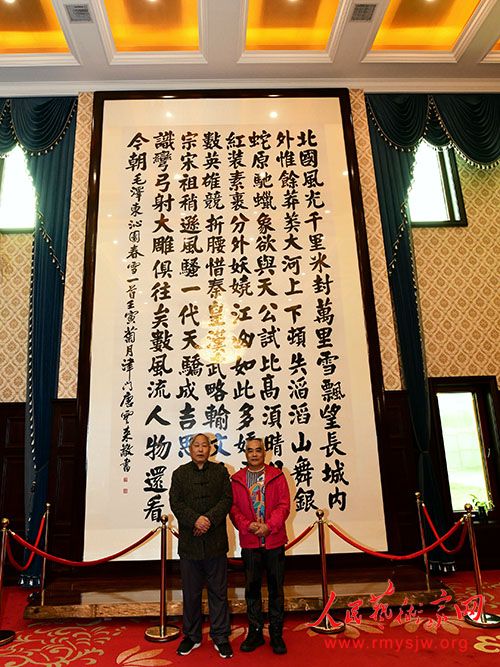 北國風光千里冰封萬里雪飄望長城內
外惟餘莽莽大河上下頓失滔滔山舞銀
蛇原馳蠟象欲與天公試比高須晴
紅裝素裹分外妖嬈江山如此多嬌
數英雄競折腰惜秦皇漢武略輸文
宗宋祖稍遜風騷一代天驕成吉思
識彎弓射大雕俱往矣數風流人物還看
今朝 毛澤東沁園春雪一首壬寅菊月津門唐雲來敬書
人民藝術家网
www.rmysjw.org